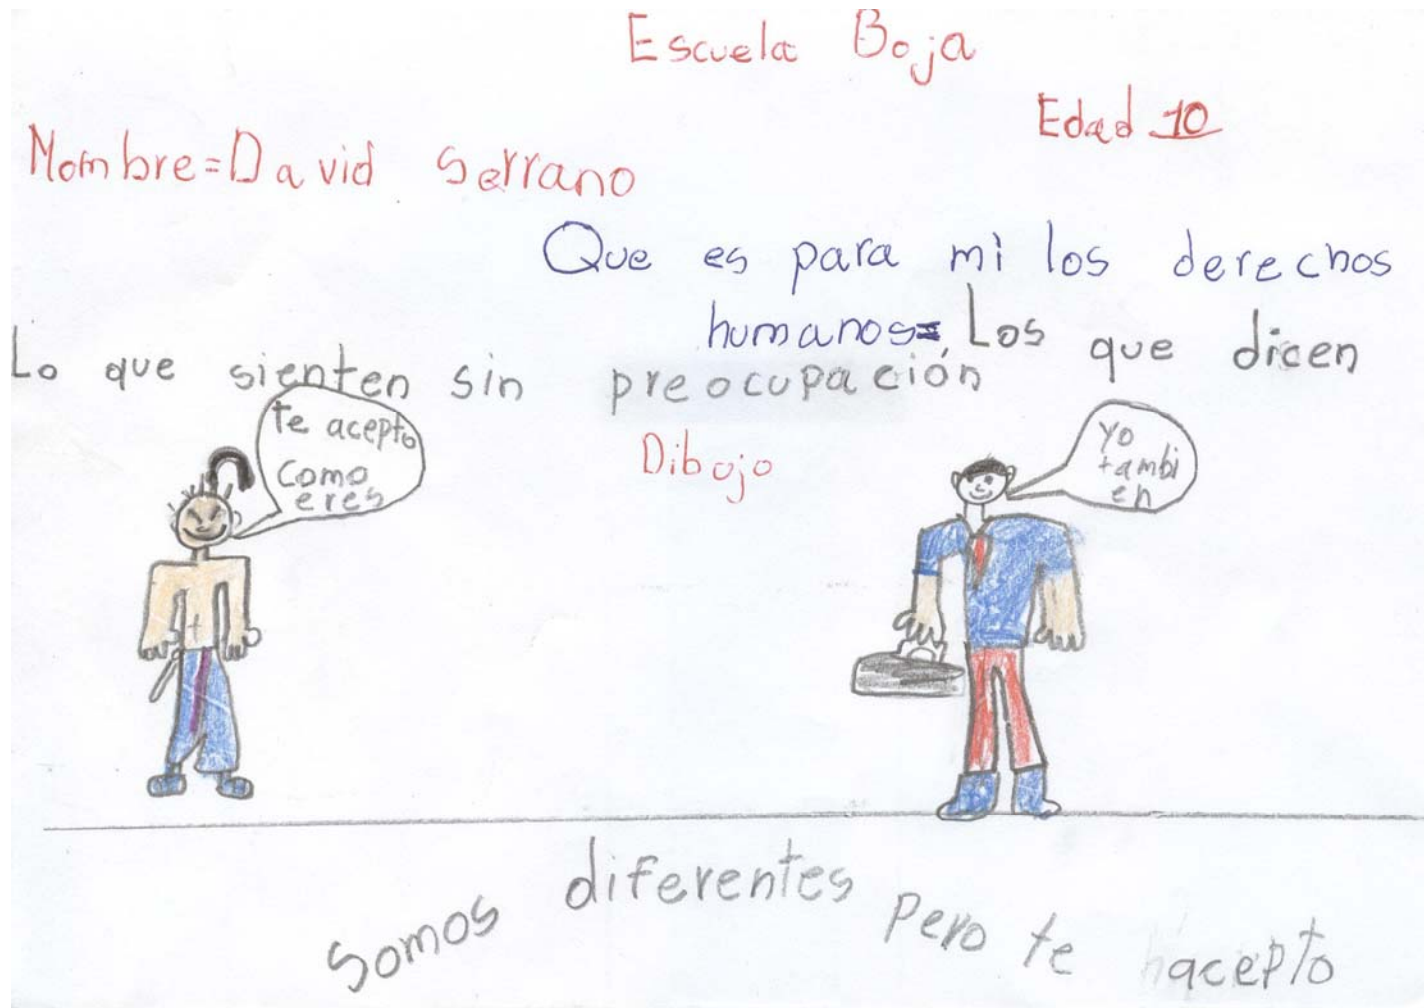 Escuela Boja
Edad 10
Nombre=David Serrano
Que es para mi los derechos
humanos= Los que dicen
Lo que sienten sin preocupación
te acepto
como
eres
Dibojo
yo
tambi
en
Somos diferentes pero te hacepto